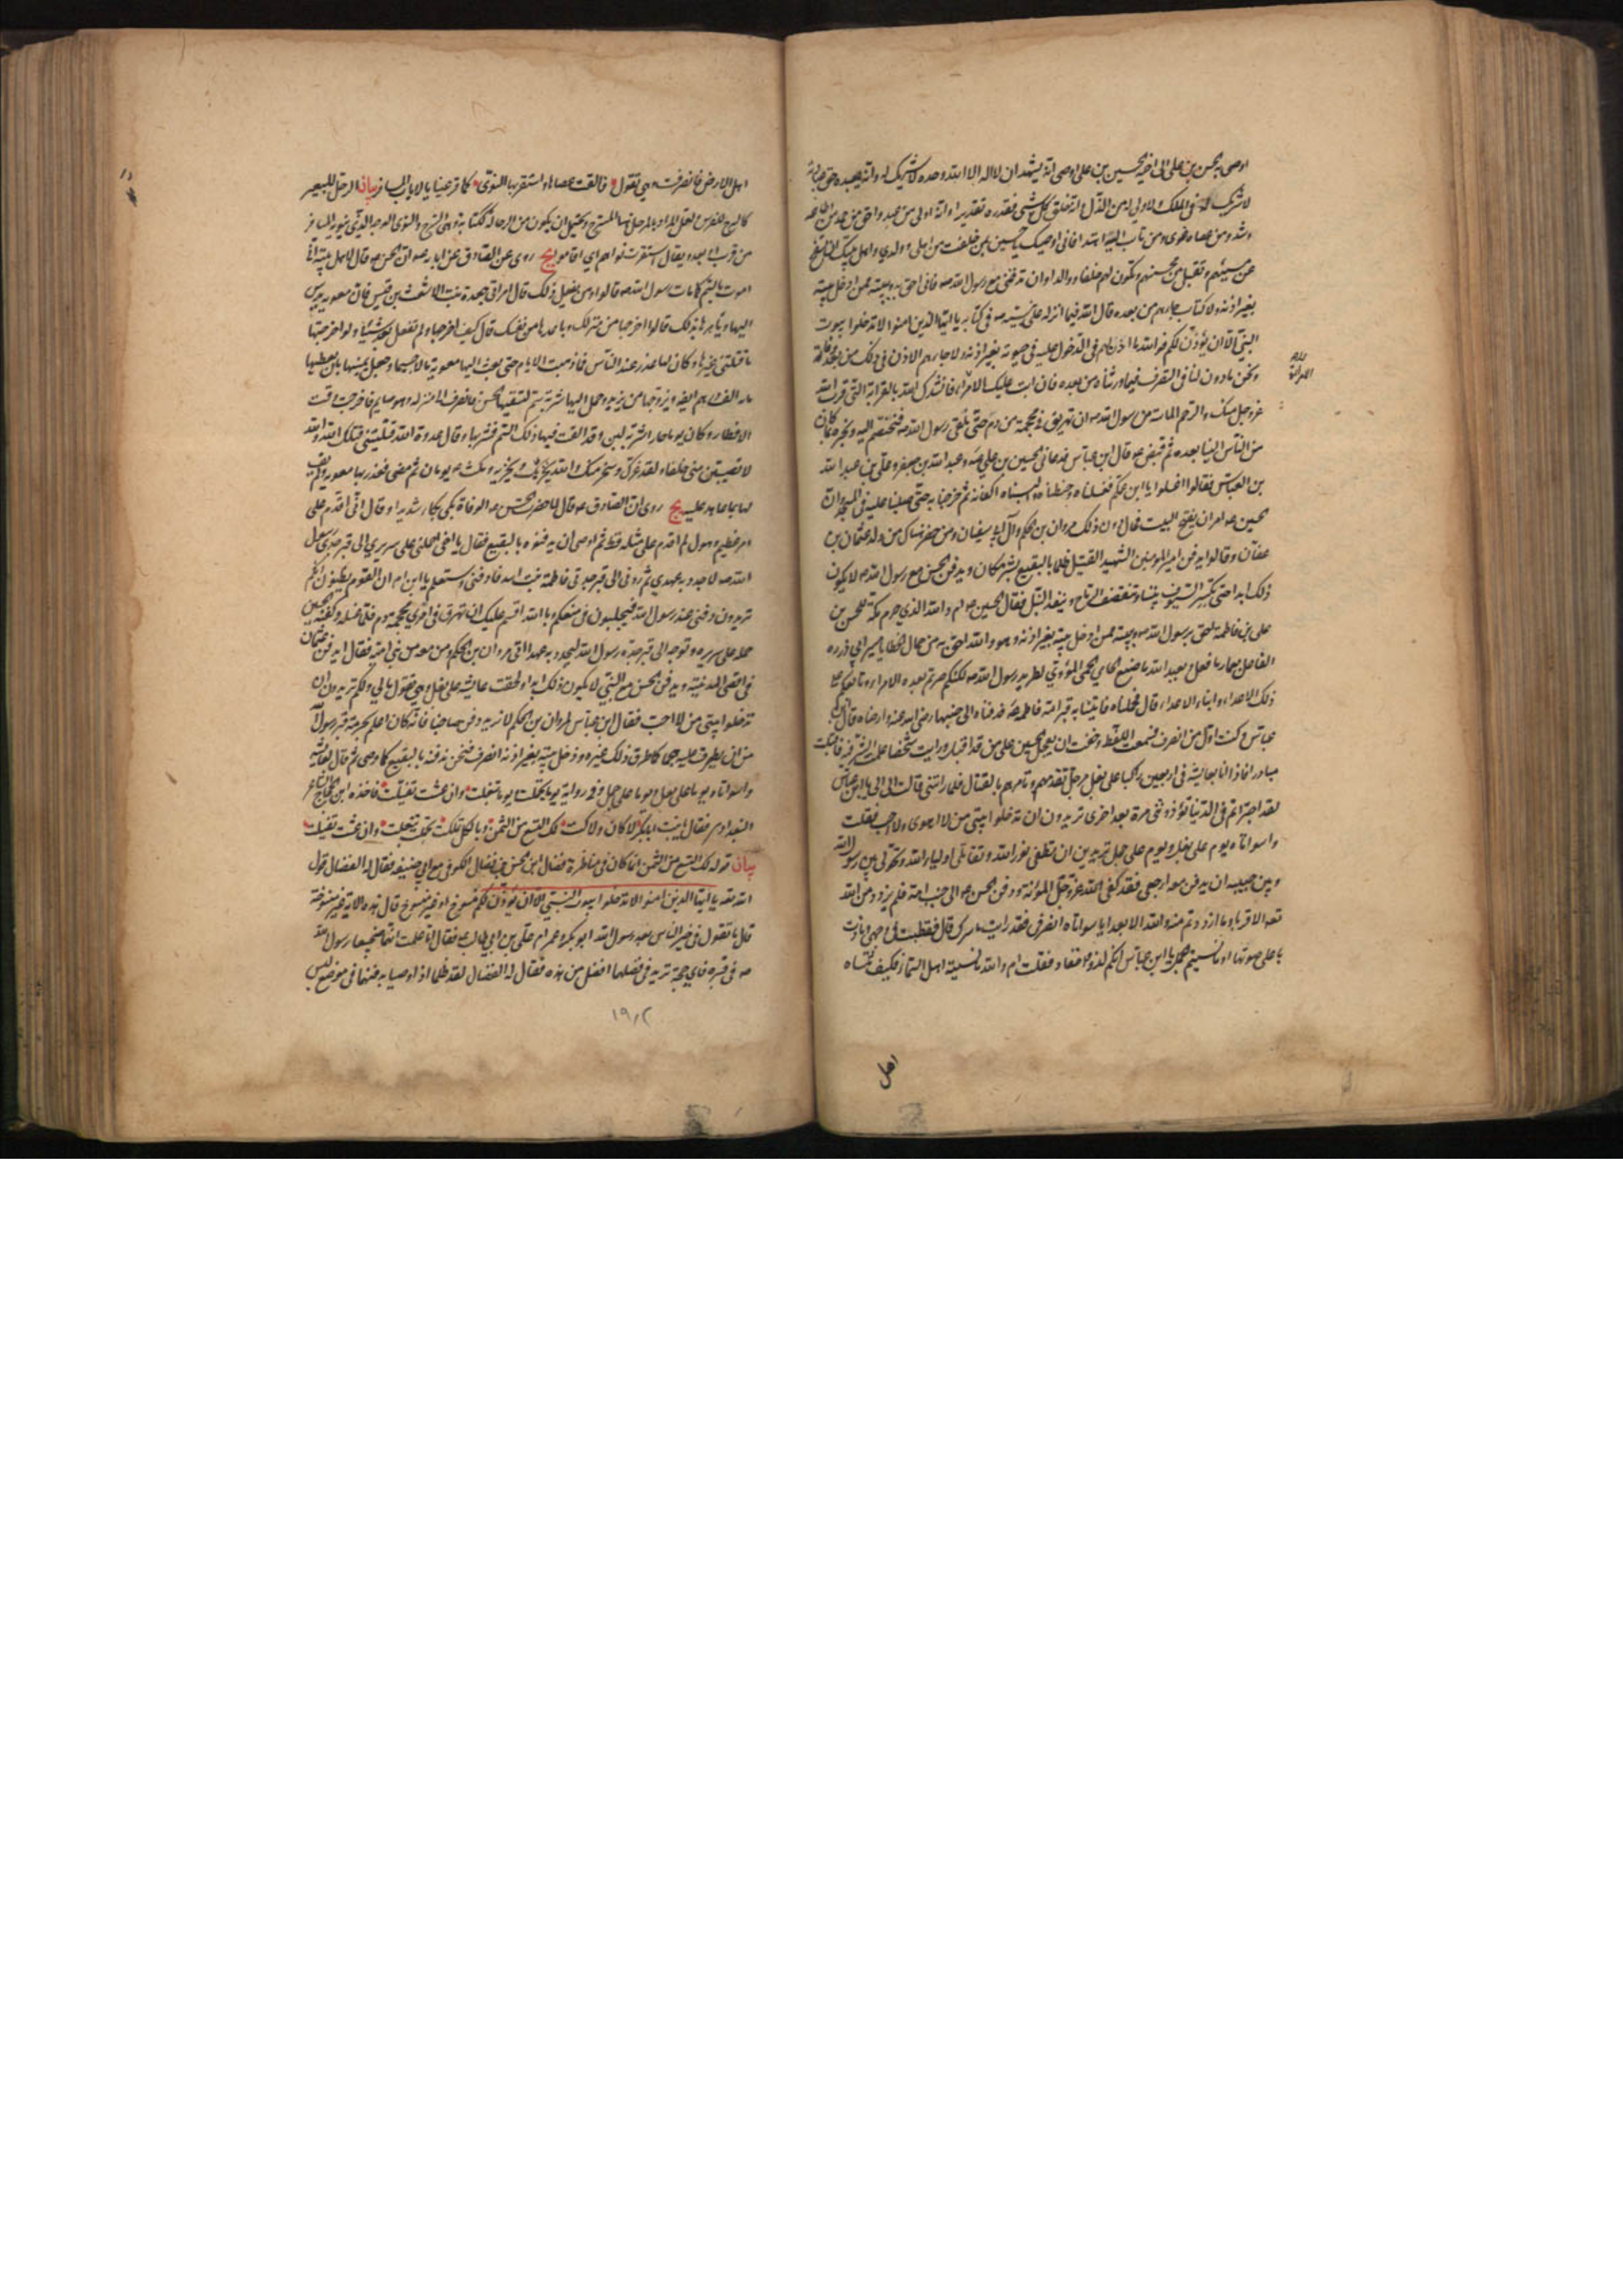 اوصى به الحسن بن على الى اخيه الحسين بن على اوصى انه يشهد ان لا اله الا الله وحده لا شريك له وانه يعبده حق عبادته
لا شريك له فى الملك ولا ولى له من الذل وانه خلق كل شىء فقدره تقديرا وانه اولى من عبد واحق من حمد من اطاعه
رشد ومن عصاه غوى ومن تاب اليه اهتدى فانى اوصيك يا حسين بمن خلفت من اهلى وولدى واهل بيتك ان تصفح
عن مسيئهم وتقبل من محسنهم وتكون لهم خلفا ووالدا وان تدفننى مع رسول الله صه فانى احق به وببيته ممن ادخل بيته
بغير اذنه ولا كتاب جاءهم من بعده قال الله فيما انزله على نبيه صه فى كتابه يا ايها الذين امنوا لا تدخلوا بيوت
النبى الا ان يؤذن لكم فوالله ما اذن لهم فى الدخول عليه فى حيوته بغير اذنه ولا جاءهم الاذن فى ذلك من بعد وفاته
ونحن ماذون لنا فى التصرف فيما ورثناه من بعده فان ابت عليك الامراة فانشدك الله بالقرابة التى قرب الله
عز وجل منك والرحم الماسة من رسول الله صه ان تهريق فى محجمة من دم حتى نلقى رسول الله صه فنختصم اليه ونخبره بما كان
من الناس الينا بعده ثم قبض عه قال ابن عباس فدعانى الحسين بن على عه وعبد الله بن جعفر وعلى بن عبد الله
بن العباس فقال اغسلوا ابن عمكم فغسلناه وحنطناه والبسناه اكفانه ثم خرجنا به حتى صلينا عليه فى المسجد وان
الحسين عه امر ان يفتح البيت فحال دون ذلك مروان بن الحكم وآل ابى سفيان ومن حضر هناك من ولد عثمان بن
عفان وقالوا ايدفن امير المؤمنين الشهيد القتيل ظلما بالبقيع بشر مكان ويدفن الحسن مع رسول الله صه لا يكون
ذلك ابدا حتى تكسر السيوف بيننا وتنقصف الرماح وينفد النبل فقال الحسين عه ام والله الذى حرم مكة للحسن بن
على بن فاطمة احق برسول الله صه وببيته ممن ادخل بيته بغير اذنه وهو والله احق به من حمال الخطايا مسير ابى ذر ره
الفاعل بعمار ما فعل وبعبد الله ما صنع الحامى الحمى المؤوى لطريد رسول الله صه لكنكم صرتم بعده الامراء وتابعكم على
ذلك الاعداء وابناء الاعداء قال فحملناه فاتينا به قبر امه فاطمه عه فدفناه الى جنبها رضى الله عنه وارضاه قال ابن
عباس وكنت اول من انصرف فسمعت اللغط وخفت ان يعجل الحسين على من قد اقبل ورايت شخصا علمت الشر فيه فاقبلت
مبادرا فاذا انا بعايشة فى اربعين راكبا على بغل مرحل تقدمهم وتامرهم بالقتال فلما راتنى قالت الى الى يا ابن عباس
لقد اجتراتم فى الدنيا تؤذوننى مرة بعد اخرى تريدون ان تدخلوا بيتى من لا اهوى ولا احب فقلت
واسوأتاه يوم على بغل ويوم على جمل تريدين ان تطفئى نور الله وتقاتلى اولياء الله وتحولى بين رسول الله
وبين حبيبه ان يدفن معه ارجعى فقد كفى الله عز وجل المؤنة ودفن الحسن عه الى جنب امه فلم يزدد من الله
تعه الا قربا وما ازددتم منه والله الا بعدا يا سوأتاه انصرفى فقد رايت ما سرك قال فقطبت فى وجهى ونادت
باعلى صوتها او ما نسيتم الجمل يا ابن عباس انكم لذووا احقاد فقلت ام والله ما نسيته اهل السماء فكيف تنساه
اهل
اهل الارض فانصرفت وهى تقول فالقت عصاها واستقر بها النوى كما قر عينا بالاياب المسافر بيان الرحل للبعير
كالسرج للفرس
من قرب او بعد ويقال استقرت نواهم اى اقاموا يج روى عن الصادق عن ابائه عه ان الحسن عه قال لاهل بيته انى
اموت بالسم كما مات رسول الله صه قالوا ومن يفعل ذلك قال امراتى جعدة بنت الاشعث بن قيس فان معوية يدس
اليها ويامرها بذلك قالوا اخرجها من منزلك وباعدها من نفسك قال كيف اخرجها ولم تفعل بعد شيئا ولو اخرجتها
ما قتلنى غيرها وكان لها عذر عند الناس فما ذهبت الايام حتى بعث اليها معوية مالا جسيما وجعل يمنيها بان يعطيها
مائة الف درهم ايضا ويزوجها من يزيد وحمل اليها شربة سم لتسقيها الحسن فانصرف الى منزله وهو صايم فاخرجت وقت
الافطار وكان يوما حارا شربة لبن وقد القت فيها ذلك السم فشربها وقال عدوة الله قتلتينى قتلك الله والله
لا تصيبين منى خلفا ولقد غرك وسخر منك والله يخزيك ويخزيه فمكث عه يومان ثم مضى فغدر بها معوية ولم يف
لها بما عاهد عليه يج روى ان الصادق عه قال لما حضرت الحسن عه الوفاة بكى بكاء شديدا وقال انى اقدم على
امر عظيم وهول لم اقدم على مثله قط ثم اوصى ان يدفنوه بالبقيع فقال يا اخى احملنى على سريرى الى قبر جدى رسول
الله صه لاجدد به عهدى ثم ردنى الى قبر جدتى فاطمة بنت اسد فادفنى وستعلم يا ابن ام ان القوم يظنون انكم
تريدون دفنى عند رسول الله فيجلبون فى منعكم وبالله اقسم عليك ان تهرق فى امرى محجمة دم فلما غسله وكفنه الحسين
حمله على سريره وتوجه الى قبر جده رسول الله ليجدد به عهدا اتى مروان بن الحكم ومن معه من بنى امية فقال ايدفن عثمان
فى اقصى المدينة ويدفن الحسن مع النبى لا يكون ذلك ابدا ولحقت عايشة على بغل وهى تقول مالى ولكم تريدون ان
تدخلوا بيتى من لا احب فقال ابن عباس لمروان بن الحكم لا نريد دفن صاحبنا فانه كان اعلم بحرمة قبر رسول الله
من ان يطرق عليه هجما كما طرق ذلك غيره ودخل بيته بغير اذنه انصرف فنحن ندفنه بالبقيع كما وصى ثم قال لعايشة
واسوأتاه يوما على بغل ويوما على جمل وفى رواية يوما تجملت ويوما تبغلت وان عشت تفيلت فاخذه ابن الحجاج الشاعر
البغدادى فقال ايا بنت ابى بكر لا كان ولا كنت لك التسع من الثمن وبالكل تملكت تجملت تبغلت وان عشت تفيلت
بيان قوله لك التسع من الثمن انما كان فى مناظرة فضال ابن الحسن بن فضال الكوفى مع ابى حنيفة فقال له الفضال قول
الله تعه يا ايها الذين امنوا لا تدخلوا بيوت النبى الا ان يؤذن لكم منسوخ او غير منسوخ قال هذه الاية غير منسوخة
قال ما تقول فى خير الناس بعد رسول الله ابو بكر وعمر ام على بن ابى طالب عه فقال اما علمت انهما ضجيعا رسول الله
صه فى قبره فاى حجة تريد فى فضلهما افضل من هذه فقال له الفضال لقد ظلما اذ اوصيا بدفنهما فى موضع ليس